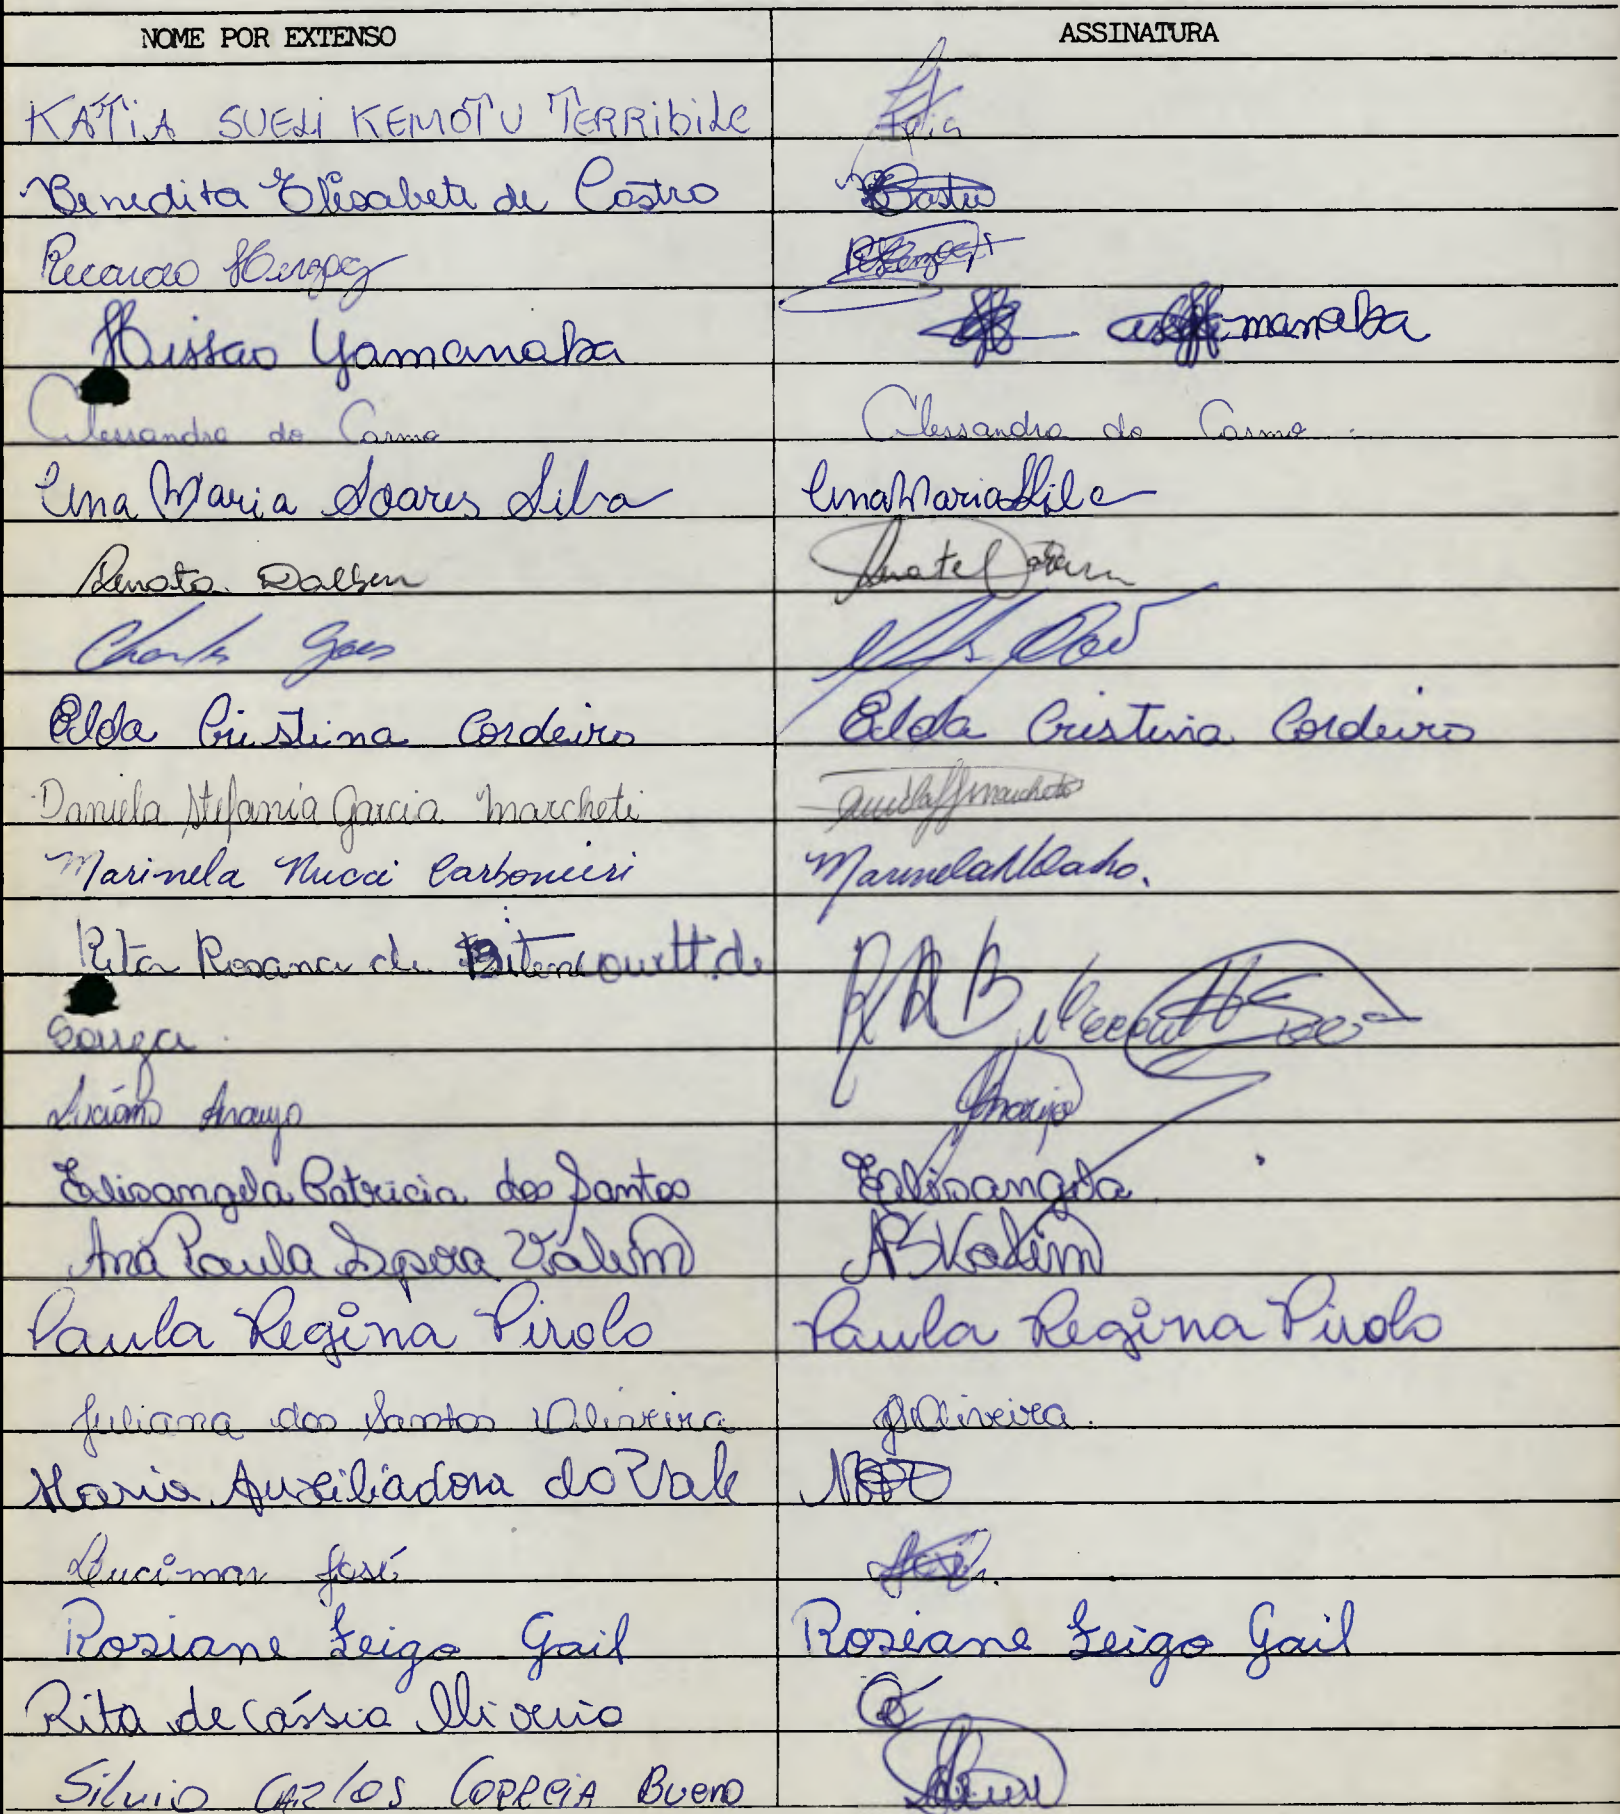 NOME POR EXTENSO ASSINATURA
KÁTIA SUELI KEMOTU TERRIBILE Katia
Benedita Elisabete de Castro BCastro
Ricardo
Hissao Yamanaka manaka
Alessandra do Carmo Alessandra do Carmo
Ana Maria Soares Silva Ana Maria Silva
Renata Dalben Renata Dalben
Charles Goes
Elda Cristina Cordeiro Elda Cristina Cordeiro
Daniela Stefania Garcia Marcheti
Marinela Nucci Carbonieri
Rita Rosana de Bitencourtt. de
Souza
Luciano Araujo Araujo
Elisangela Patricia dos Santos Elisangela
Ana Paula Spera Valim APSValim
Paula Regina Pirolo Paula Regina Pirolo
Juliana dos Santos Oliveira JSOliveira.
Maria Auxiliadora do Vale
Lucimar José José
Rosiane Leigo Gail Rosiane Leigo Gail
Rita de Cássia
Silvio CARLOS CORREIA BUENO